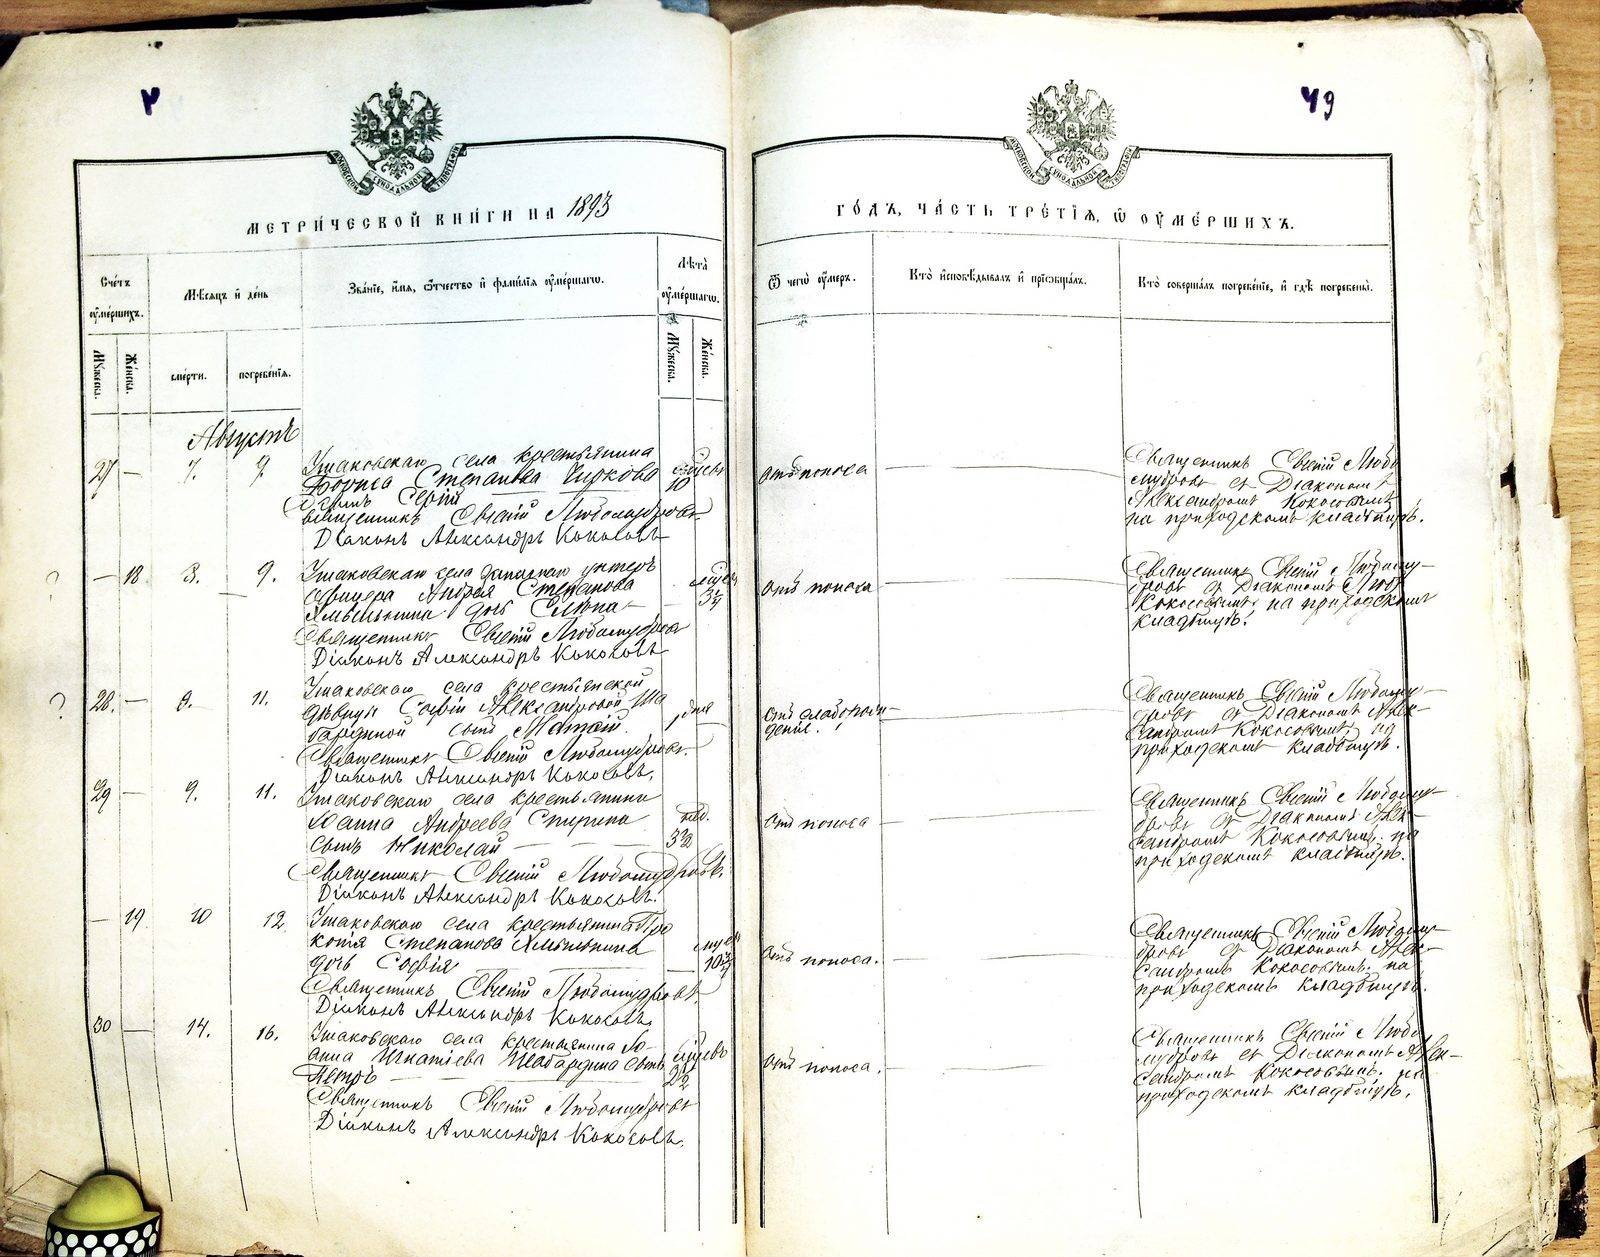 49
МОСКОВСКОЙ СѴНОДАЛЬНОЙ ТИПОГРАФІИ
МОСКОВСКОЙ СѴНОДАЛЬНОЙ ТИПОГРАФІИ
МЕТРИ́ЧЕСКОЙ КНИ́ГИ НА 1893
ГО́ДЪ, ЧА́СТЬ ТРЕ́ТІѦ, Ѡ҆ ОУ҆МЕ́РШИХЪ.
Сче́тъ оу҆ме́ршихъ.
Мѣ́сѧцъ и҆ де́нь
Зва́нїе, и҆́мѧ, ѻ҆́тчество и҆ фами́лїѧ оу҆ме́ршагѡ.
Лѣ́та оу҆ме́ршагѡ.
Ѿ чегѡ̀ оу҆́меръ.
Кто̀ и҆сповѣ́дывалъ и҆ прїѡбща́лъ.
Кто̀ соверша́лъ погребе́нїе, и҆ гдѣ̀ погребены̀.
Му́жеска.
Же́нска.
сме́рти.
погребе́нїѧ.
Му́жеска.
Же́нска.
Августъ
27 — 7. 9. Ушаковскаго села крестьянина
Бориса Степанова Чиркова
сынъ Сергій 10
Священникъ Евгеній Любомудровъ
Діаконъ Александръ Кокосовъ
отъ поноса
Священникъ Евгеній Любо
мудровъ съ Діакономъ
Александромъ Кокосовымъ
на приходскомъ кладбищѣ.
— 18 3. 9. Ушаковскаго села запаснаго унтеръ
офицера Андрея Степанова
Хмѣльнина дочь Елена
Священникъ Евгеній Любомудровъ
Діаконъ Александръ Кокосовъ
отъ поноса
Священникъ Евгеній Любому-
дровъ съ Діакономъ
Кокосовымъ, на приходскомъ
кладбищѣ.
28. — 9. 11. Ушаковскаго села крестьянской
дѣвицы Софіи Александровой Ша
бардиной сынъ Матѳій. дня
Священникъ Евгеній Любомудровъ.
Діаконъ Александръ Кокосовъ.
отъ слаборож-
денія.
Священникъ Евгеній Любому-
дровъ съ Діакономъ Алек-
сандромъ Кокосовымъ, на
приходскомъ кладбищѣ.
29 — 9. 11. Ушаковскаго села крестьянина
Іоанна Андреева Спирина
сынъ Николай
Священникъ Евгеній Любомудровъ.
Діаконъ Александръ Кокосовъ.
отъ поноса
Священникъ Евгеній Любому-
дровъ съ Діакономъ Алек-
сандромъ Кокосовымъ. на
приходскомъ кладбищѣ.
— 19 10 12 Ушаковскаго села крестьянина Про
копія Степанова Хмѣльнина
дочь Софія
Священникъ Евгеній Любомудровъ
Діаконъ Александръ Кокосовъ.
отъ поноса.
Священникъ Евгеній Любому-
дровъ съ Діакономъ Алек-
сандромъ Кокосовымъ. на
приходскомъ кладбищѣ.
30 — 14. 16. Ушаковскаго села крестьянина Іо-
анна Игнатіева Шабардина сынъ
Петръ
Священникъ Евгеній Любомудровъ
Діаконъ Александръ Кокосовъ.
отъ поноса.
Священникъ Евгеній Любо
мудровъ съ Діакономъ Алек-
сандромъ Кокосовымъ. на
приходскомъ кладбищѣ.